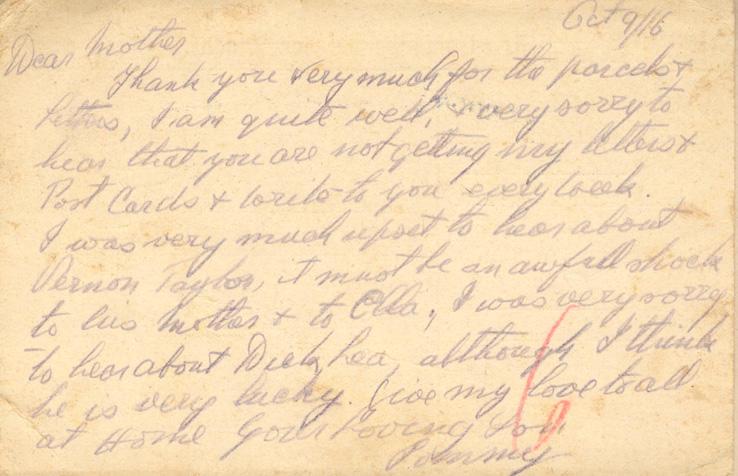 Oct 9/16
Dear Mother
Thank you very much for the parcels &
letters, I am quite well, & very sorry to
hear that you are not getting my letters &
Post Cards & write to you every week.
I was very much upset to hear about
Vernon Taylor, it must be an awful shock
to his mother & to Ella, I was very sorry
to hear about Dick, although I think
he is very lucky. Give my love to all
at Home Your Loving Son
Tommy